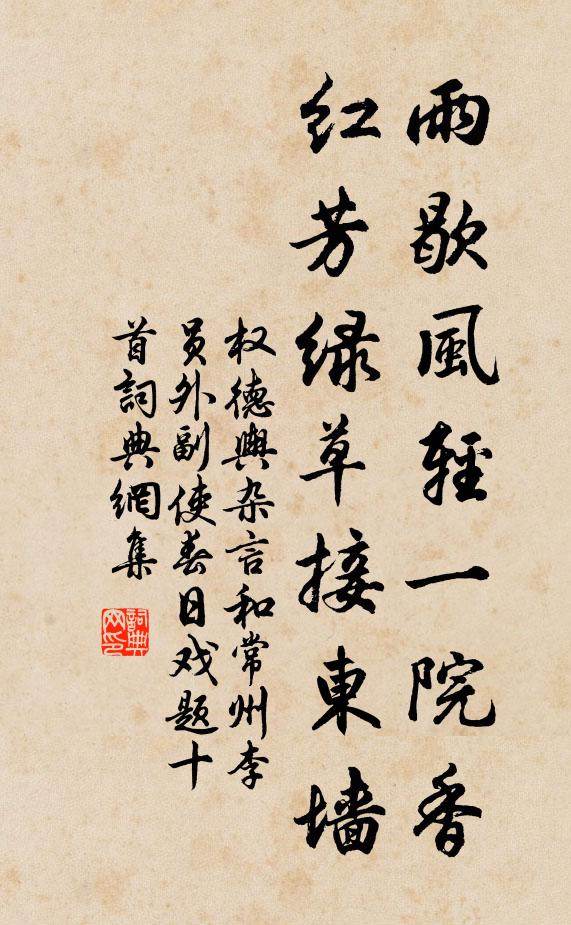 雨歇風輕一院香
紅芳緑草接東墙
权德輿杂言和常州李
员外副使春日戏题十
首詞典網集
詞典
网印